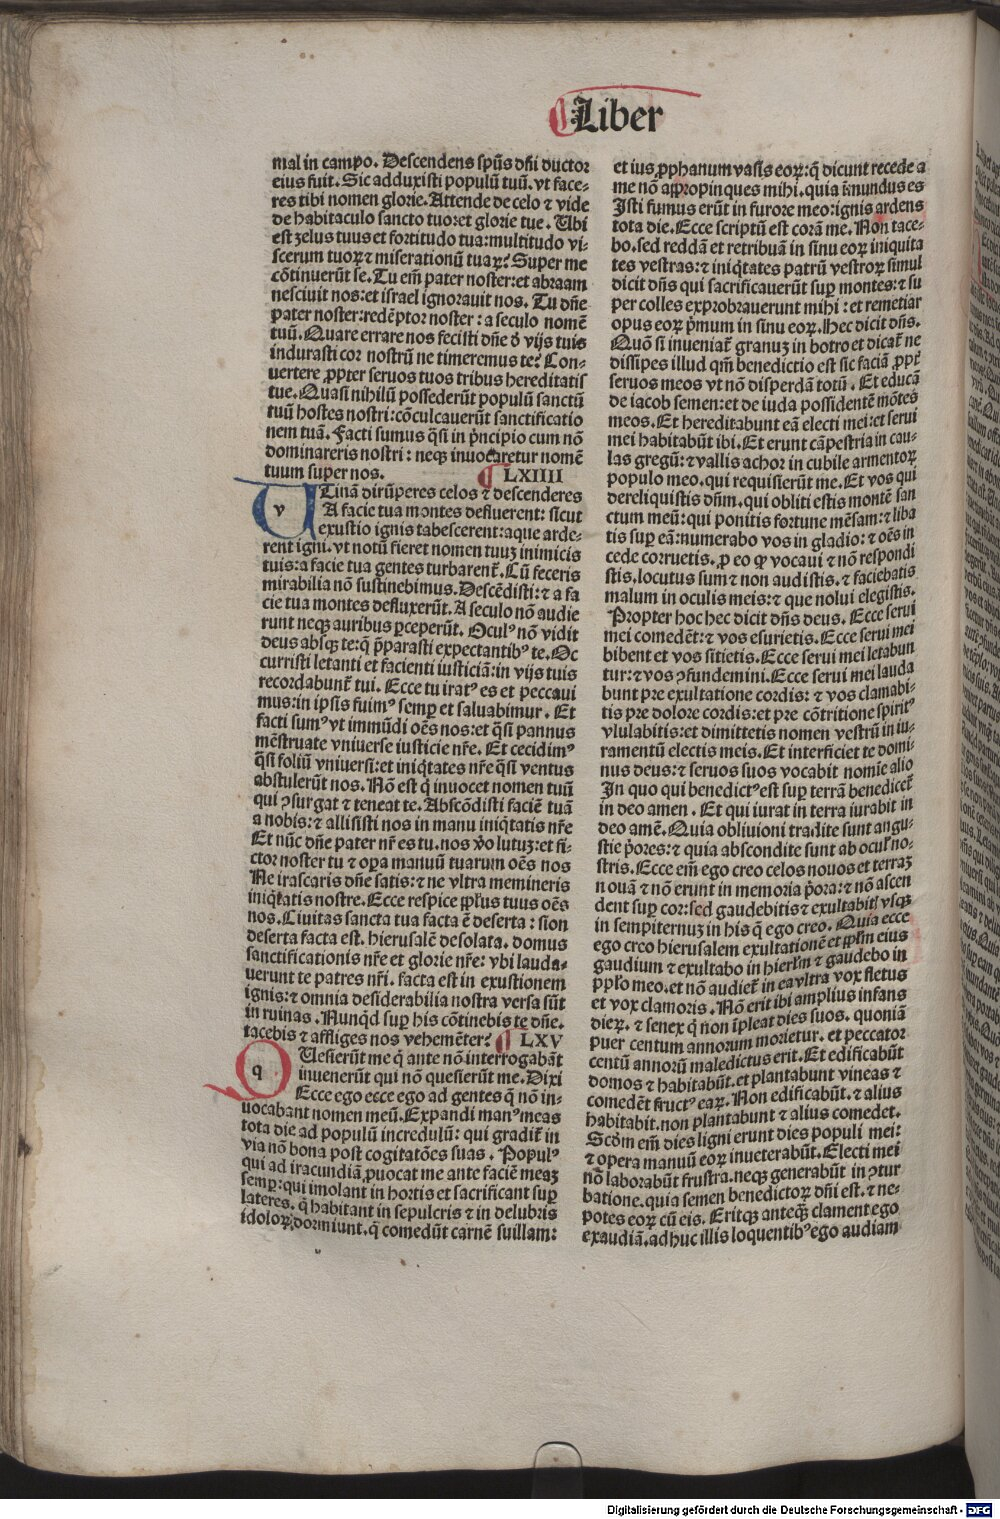 Liber
mal in campo. Descendens spũs dñi ductor
eius fuit. Sic adduxisti populũ tuũ. vt face-
res tibi nomen glorie. Attende de celo ⁊ vide
de habitaculo sancto tuo: et glorie tue. Ubi
est zelus tuus et fortitudo tua: multitudo vi-
scerum tuoꝝ ⁊ miserationũ tuaꝝ? Super me
cõtinuerũt se. Tu em̃ pater noster: et abraam
nesciuit nos: et israel ignorauit nos. Tu dñe
pater noster: redẽptor noster: a seculo nomẽ
tuũ. Quare errare nos fecisti dñe d̕ vijs tuis
indurasti cor nostrũ ne timeremus te? Con-
uertere ꝓpter seruos tuos tribus hereditatis
tue. Quasi nihilũ possederũt populũ sanctũ
tuũ hostes nostri: cõculcauerũt sanctificatio
nem tuã. Facti sumus q̃si in p̕ncipio cum nõ
dominareris nostri: neqꝫ inuocaretur nomẽ
tuum super nos. LXIIII
v Utinã dirũperes celos ⁊ descenderes
A facie tua montes defluerent: sicut
exustio ignis tabescerent: aque arde-
rent igni. vt notũ fieret nomen tuuꝫ inimicis
tuis: a facie tua gentes turbarenť. Cũ feceris
mirabilia nõ sustinebimus. Descẽdisti: ⁊ a fa
cie tua montes defluxerũt. A seculo nõ audie
runt neqꝫ auribus ꝑceperũt. Oculꝰ nõ vidit
deus absqꝫ te: q̃ p̃parasti expectantibꝰ te. Oc
curristi letanti et facienti iusticiã: in vijs tuis
recordabunť tui. Ecce tu iratꝰ es et peccaui
mus: in ipsis fuimꝰ semꝑ et saluabimur. Et
facti sumꝰ vt immũdi oẽs nos: et q̃si pannus
mẽstruate vniuerse iusticie nr̃e. Et cecidimꝰ
q̃si foliũ vniuersi: et iniq̃tates nr̃e q̃si ventus
abstulerũt nos. Nõ est q̃ inuocet nomen tuũ
qui ꝯsurgat ⁊ teneat te. Abscõdisti faciẽ tuã
a nobis: ⁊ allisisti nos in manu iniq̃tatis nr̃e
Et nũc dñe pater nr̃ es tu. nos v̕o lutuꝫ: et fi-
ctor noster tu ⁊ oꝑa manuũ tuarum oẽs nos
Ne irascaris dñe satis: ⁊ ne vltra memineris
iniq̃tatis nostre. Ecce respice ppl̃us tuus oẽs
nos. Ciuitas sancta tua facta ẽ deserta: sion
deserta facta est. hierusalẽ desolata. domus
sanctificationis nr̃e et glorie nr̃e: vbi lauda-
uerunt te patres nr̃i. facta est in exustionem
ignis: ⁊ omnia desiderabilia nostra versa sũt
in ruinas. Nunqđ suꝑ his cõtinebis te dñe.
tacebis ⁊ affliges nos vehemẽter? LXV
q Quesierũt me q̃ ante nõ interrogabãt
inuenerũt qui nõ quesierũt me. Dixi
Ecce ego ecce ego ad gentes q̃ nõ in-
uocabant nomen meũ. Expandi manꝰ meas
tota die ad populũ incredulũ: qui gradiť in
via nõ bona post cogitatões suas. Populꝰ
qui ad iracundiã ꝓuocat me ante faciẽ meaꝫ
semꝑ: qui imolant in hortis et sacrificant suꝑ
lateres. q̃ habitant in sepulcris ⁊ in delubris
idoloꝝ dormiunt. q̃ comedũt carnẽ suillam:
et ius ꝓphanum vasis eoꝝ: q̃ dicunt recede a
me nõ appropinques mihi. quia ĩmundus es
Isti fumus erũt in furore meo: ignis ardens
tota die. Ecce scriptũ est corã me. Non tace-
bo. sed reddã et retribuã in sinu eoꝝ iniquita
tes vestras: ⁊ iniq̃tates patrũ vestroꝝ simul
dicit dñs qui sacrificauerũt suꝑ montes: ⁊ su
per colles exprobrauerunt mihi: et remetiar
opus eoꝝ p̕mum in sinu eoꝝ. Hec dicit dñs.
Quõ si inueniať granuꝫ in botro et dicať ne
dissipes illud qm̃ benedictio est sic faciã ꝓpť
seruos meos vt nõ disperdã totũ. Et educã
de iacob semen: et de iuda possidentẽ mõtes
meos. Et hereditabunt eã electi mei: et serui
mei habitabũt ibi. Et erunt cãpestria in cau-
las gregũ: ⁊ vallis achor in cubile armentoꝝ
populo meo. qui requisierũt me. Et vos qui
dereliquistis dñm. qui obliti estis montẽ san
ctum meũ: qui ponitis fortune mẽsam: ⁊ liba
tis suꝑ eã: numerabo vos in gladio: ⁊ oẽs in
cede corruetis. ꝓ eo ꝙ vocaui ⁊ nõ respondi
stis. locutus sum ⁊ non audistis. ⁊ faciebatis
malum in oculis meis: ⁊ que nolui elegistis.
Propter hoc hec dicit dñs deus. Ecce serui
mei comedẽt: ⁊ vos esurietis. Ecce serui mei
bibent et vos sitietis. Ecce serui mei letabun
tur: ⁊ vos ꝯfundemini. Ecce serui mei lauda
bunt pre exultatione cordis: ⁊ vos clamabi-
tis pre dolore cordis: et pre cõtritione spiritꝰ
vlulabitis: et dimittetis nomen vestrũ in iu-
ramentũ electis meis. Et interficiet te domi-
nus deus: ⁊ seruos suos vocabit nomĩe alio
In quo qui benedictꝰ est suꝑ terrã benediceť
in deo amen. Et qui iurat in terra iurabit in
deo amẽ. Quia obliuioni tradite sunt angu-
stie p̕ores: ⁊ quia abscondite sunt ab ocul̕ no-
stris. Ecce em̃ ego creo celos nouos et terraꝫ
nouã ⁊ nõ erunt in memoria p̕ora: ⁊ nõ ascen
dent suꝑ cor: sed gaudebitis ⁊ exultabitꝭ vsqꝫ
in sempiternuꝫ in his q̃ ego creo. Quia ecce
ego creo hierusalem exultationẽ et ppl̃m eius
gaudium ⁊ exultabo in hierl̃m ⁊ gaudebo in
ppl̃o meo. et nõ audieť in ea vltra vox fletus
et vox clamoris. Nõ erit ibi amplius infans
dieꝝ. ⁊ senex q̃ non ĩpleat dies suos. quoniã
puer centum annorum morietur. et peccator
centũ annorũ maledictus erit. Et edificabũt
domos ⁊ habitabũt. et plantabunt vineas ⁊
comedẽt fructꝰ eaꝝ. Non edificabũt. ⁊ alius
habitabit. non plantabunt ⁊ alius comedet.
Scd̃m em̃ dies ligni erunt dies populi mei:
⁊ opera manuũ eoꝝ inueterabũt. Electi mei
nõ laborabũt frustra. neqꝫ generabũt in ꝯtur
batione. quia semen benedictoꝝ dñi est. ⁊ ne-
potes eoꝝ cũ eis. Eritqꝫ anteq̃ꝫ clament ego
exaudiã. adhuc illis loquentibꝰ ego audiam
Digitalisierung gefördert durch die Deutsche Forschungsgemeinschaft - DFG